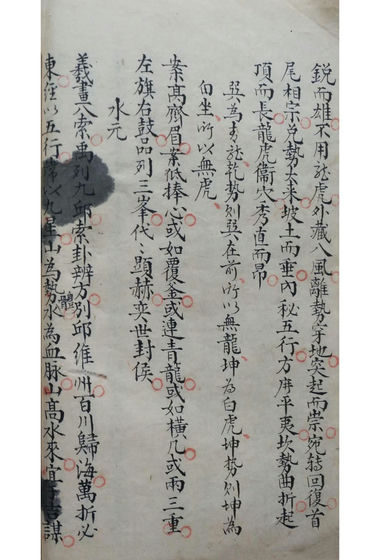 銳而雄不用龍虎外藏八風離勢穿地突起而崇宛轉回復首
尾相宗兌勢大來坡土而垂內秘五行方屏平夷坎勢曲折起
頂而長龍虎衛穴秀直而昂
巽為青龍乾勢則巽在前所以無龍坤為白虎坤勢則坤為
白坐所以無虎
案高齊眉案低捧心或如覆釜或連青龍或如橫几或兩三重
左旗右鼓品列三峯代〻顯赫奕世封侯
水元
羲畫八索禹列九邱索卦辨方別邱維州百川歸海萬折必
東經以五行緯以九星山為勢體水為血脉山高水來宜謀